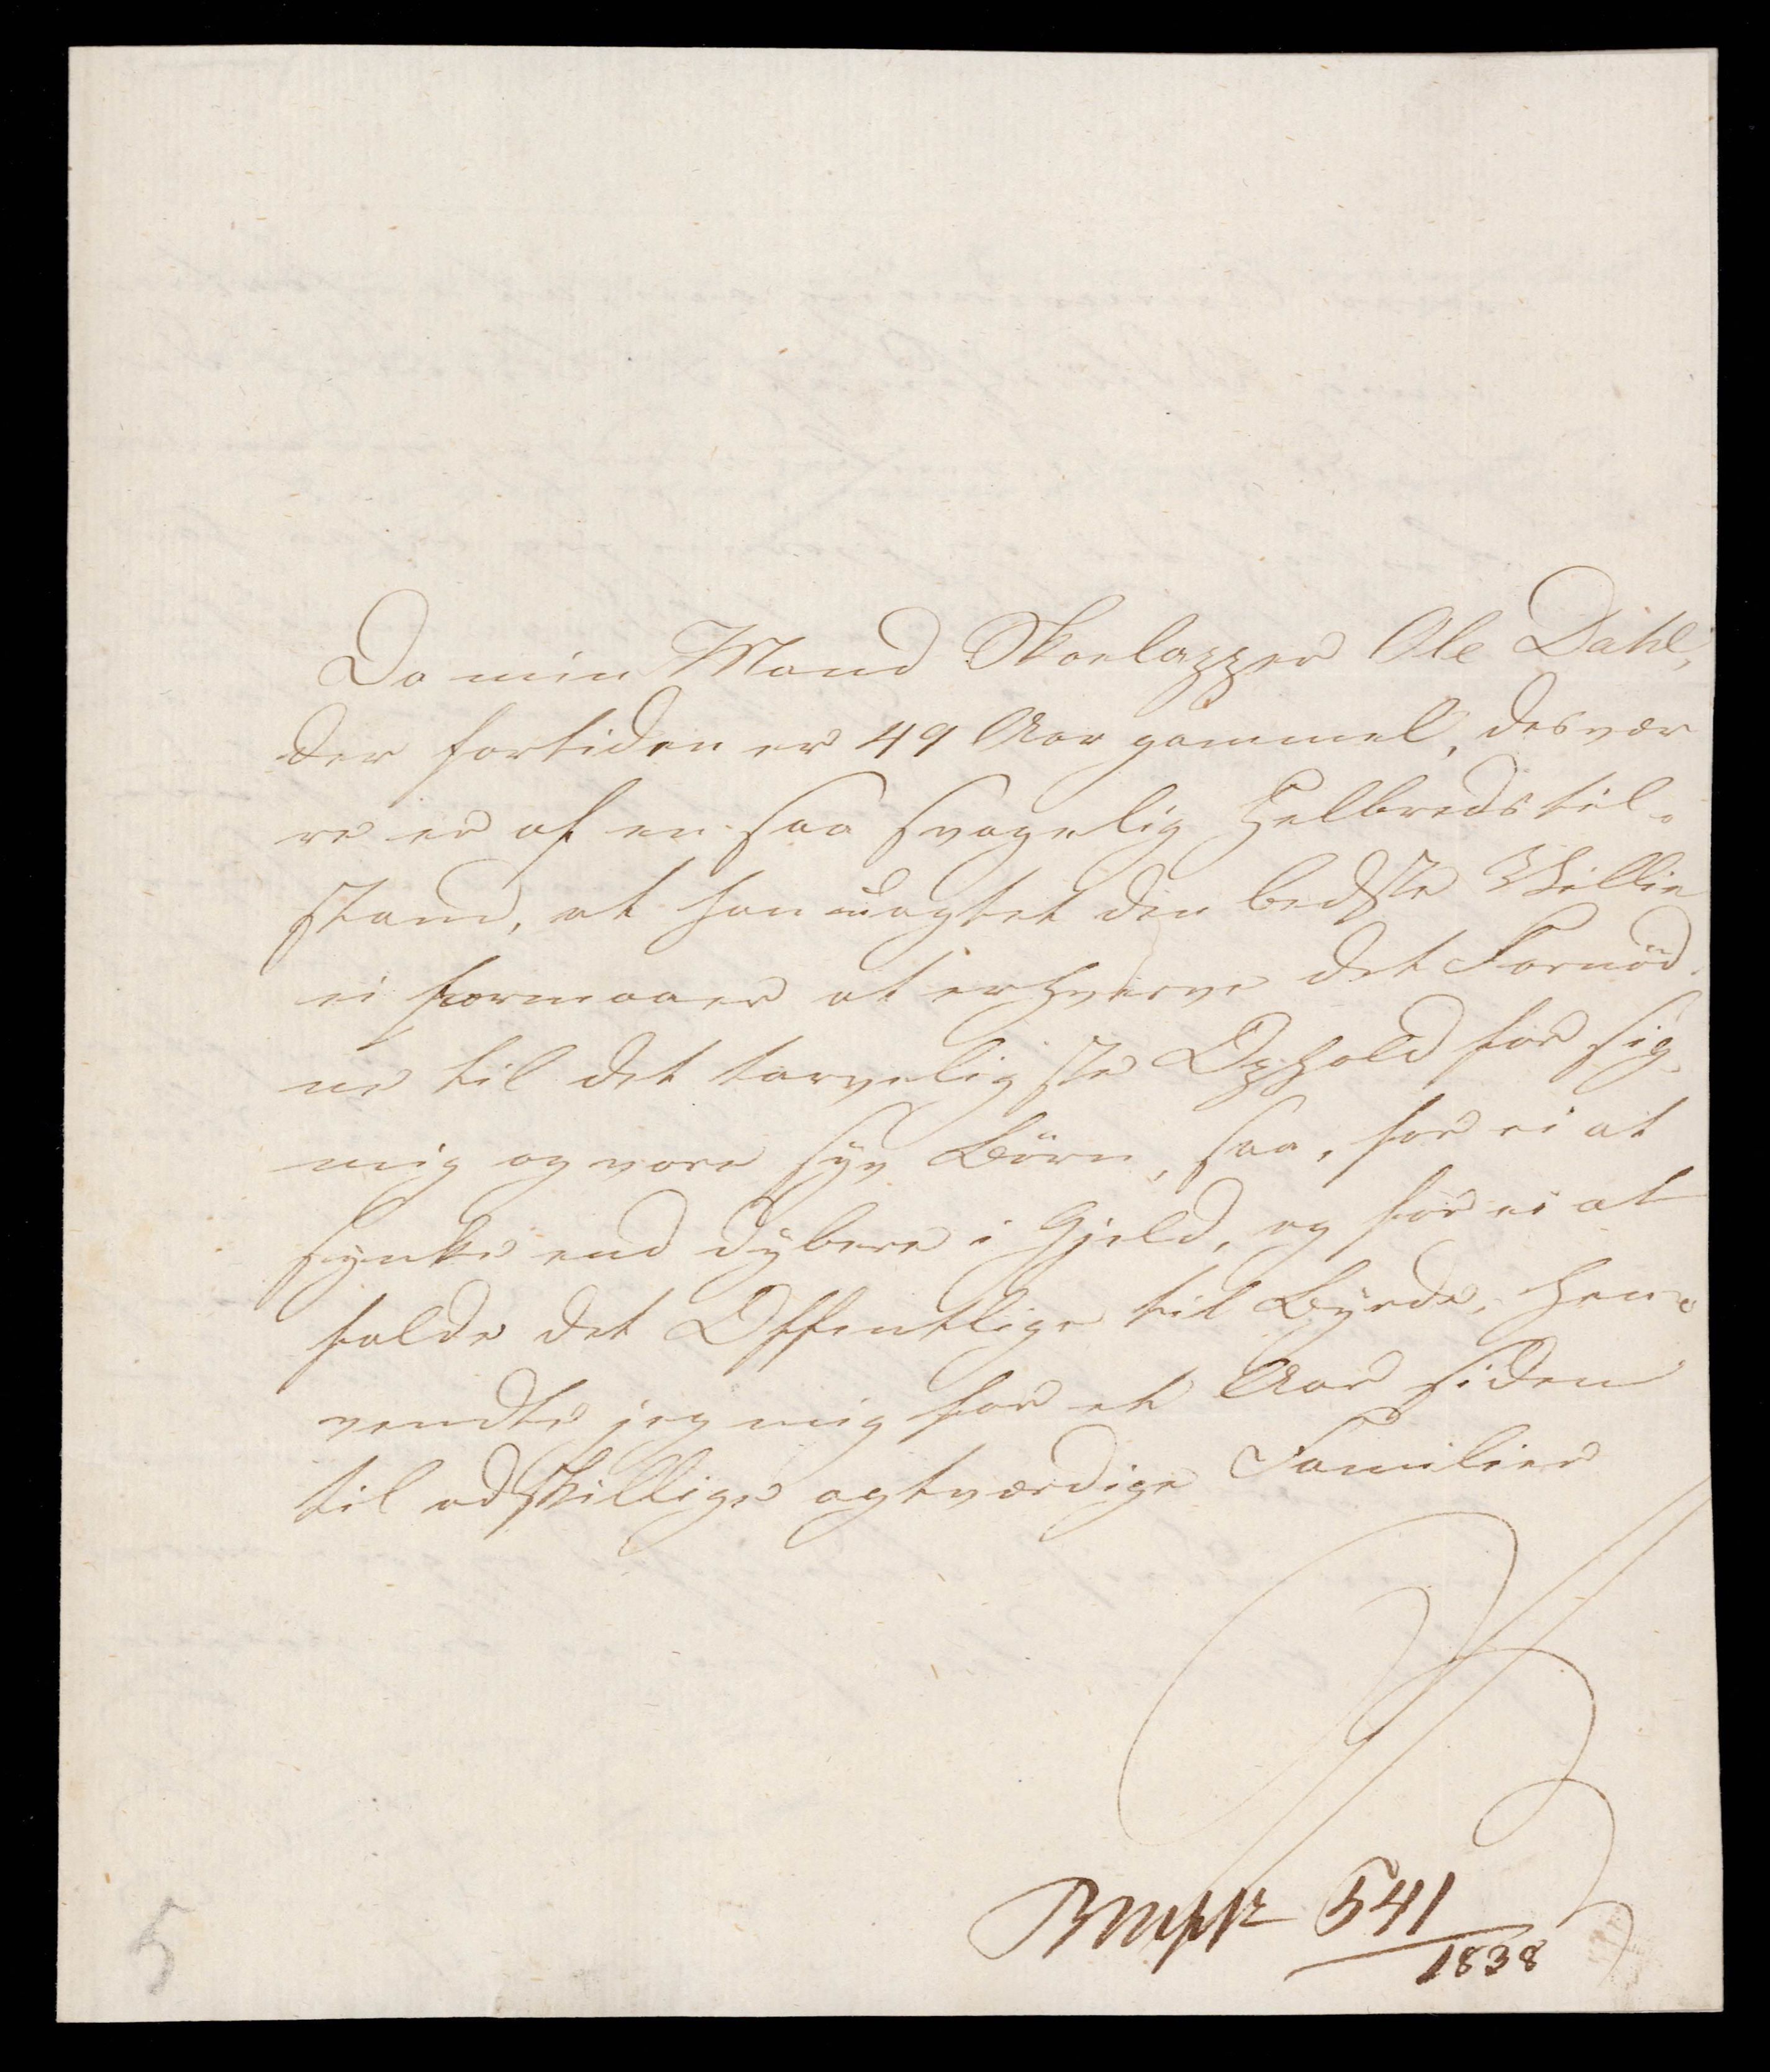 Da min Mand Skoelapper Ole Dahl,
der fortiden er 49 Aar gammel, desvær
re er af en saa svagelig Helbredstil-
stand, at han uagtet den bedste Villie
ei formaaer at erhverve det Fornød-
ne til det tarveligste Ophold for sig,
mig og vore syv Börn, saa, for ei at
synke end dybere i Gjeld, og for ei at
falde det Offentlige til Byrde, hen-
vendte jeg mig for et Aar siden
til adskillige agtværdige Familier
541
1838
5